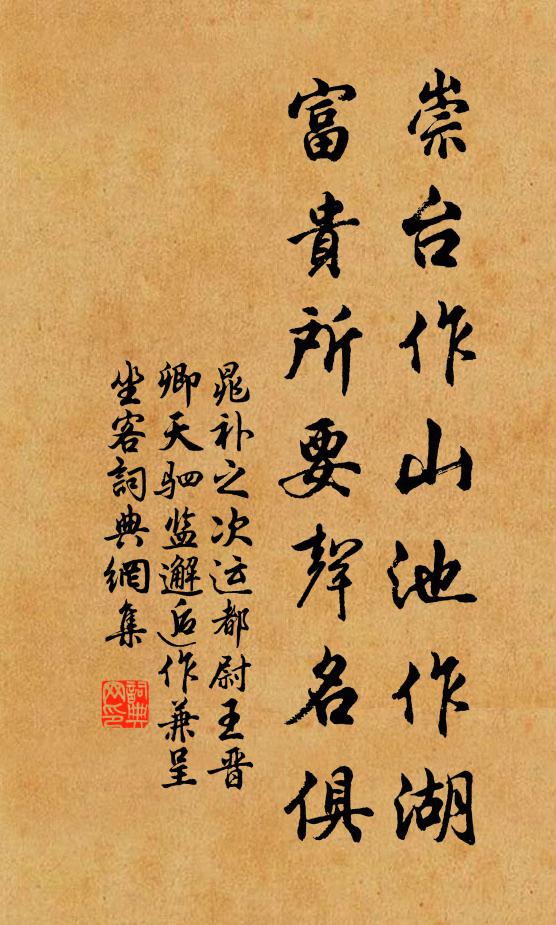 崇台作山池作湖
富貴所要聲名俱
晁补之次运都尉王晋
卿天驷监邂逅作兼呈
坐客詞典網集
詞典
网印